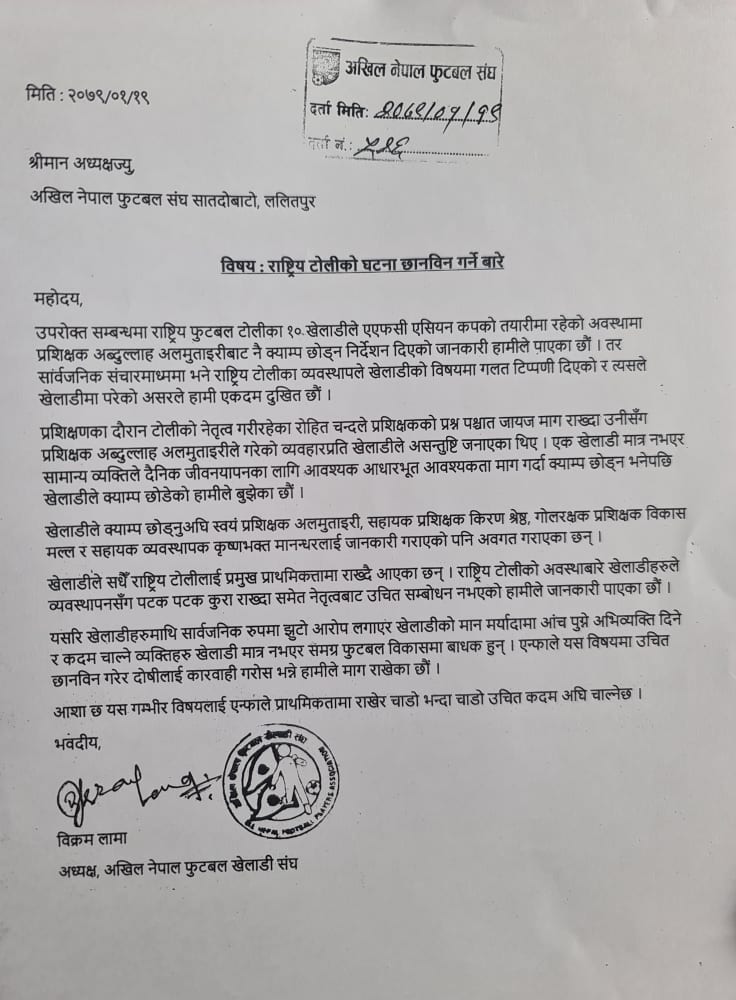 अखिल नेपाल फुटबल संघ
मिति : २०७९/०१/१९
दर्ता मितिः २०७९/०१/१९
दर्ता नं.:
श्रीमान अध्यक्षज्यु,
अखिल नेपाल फुटबल संघ सातदोबाटो, ललितपुर
विषय : राष्ट्रिय टोलीको घटना छानविन गर्ने बारे
महोदय,
उपरोक्त सम्बन्धमा राष्ट्रिय फुटबल टोलीका १० खेलाडीले एएफसी एसियन कपको तयारीमा रहेको अवस्थामा
प्रशिक्षक अब्दुल्लाह अलमुताइरीबाट नै क्याम्प छोड्न निर्देशन दिएको जानकारी हामीले पाएका छौं । तर
सार्वजनिक संचारमाध्यममा भने राष्ट्रिय टोलीका व्यवस्थापले खेलाडीको विषयमा गलत टिप्पणी दिएको र त्यसले
खेलाडीमा परेको असरले हामी एकदम दुखित छौं ।
प्रशिक्षणका दौरान टोलीको नेतृत्व गरीरहेका रोहित चन्दले प्रशिक्षकको प्रश्न पश्चात जायज माग राख्दा उनीसँग
प्रशिक्षक अब्दुल्लाह अलमुताइरीले गरेको व्यवहारप्रति खेलाडीले असन्तुष्टि जनाएका थिए । एक खेलाडी मात्र नभएर
सामान्य व्यक्तिले दैनिक जीवनयापनका लागि आवश्यक आधारभूत आवश्यकता माग गर्दा क्याम्प छोड्न भनेपछि
खेलाडीले क्याम्प छोडेको हामीले बुझेका छौं ।
खेलाडीले क्याम्प छोड्नुअघि स्वयं प्रशिक्षक अलमुताइरी, सहायक प्रशिक्षक किरण श्रेष्ठ, गोलरक्षक प्रशिक्षक विकास
मल्ल र सहायक व्यवस्थापक कृष्णभक्त मानन्धरलाई जानकारी गराएको पनि अवगत गराएका छन् ।
खेलाडीले सधैँ राष्ट्रिय टोलीलाई प्रमुख प्राथमिकतामा राख्दै आएका छन् । राष्ट्रिय टोलीको अवस्थाबारे खेलाडीहरुले
व्यवस्थापनसँग पटक पटक कुरा राख्दा समेत नेतृत्वबाट उचित सम्बोधन नभएको हामीले जानकारी पाएका छौं ।
यसरि खेलाडीहरुमाथि सार्वजनिक रुपमा झुटो आरोप लगाएर खेलाडीको मान मर्यादामा आंच पुग्ने अभिव्यक्ति दिने
र कदम चाल्ने व्यक्तिहरु खेलाडी मात्र नभएर संमग्र फुटबल विकासमा बाधक हुन् । एन्फाले यस विषयमा उचित
छानविन गरेर दोषीलाई कारवाही गरोस भन्ने हामीले माग राखेका छौं ।
आशा छ यस गम्भीर विषयलाई एन्फाले प्राथमिकतामा राखेर चाडो भन्दा चाडो उचित कदम अघि चाल्नेछ ।
भवदीय,
विक्रम लामा
अध्यक्ष, अखिल नेपाल फुटबल खेलाडी संघ
अखिल नेपाल फुटबल खेलाडी संघ
ALL NEPAL FOOTBALL PLAYERS ASSOCIATION